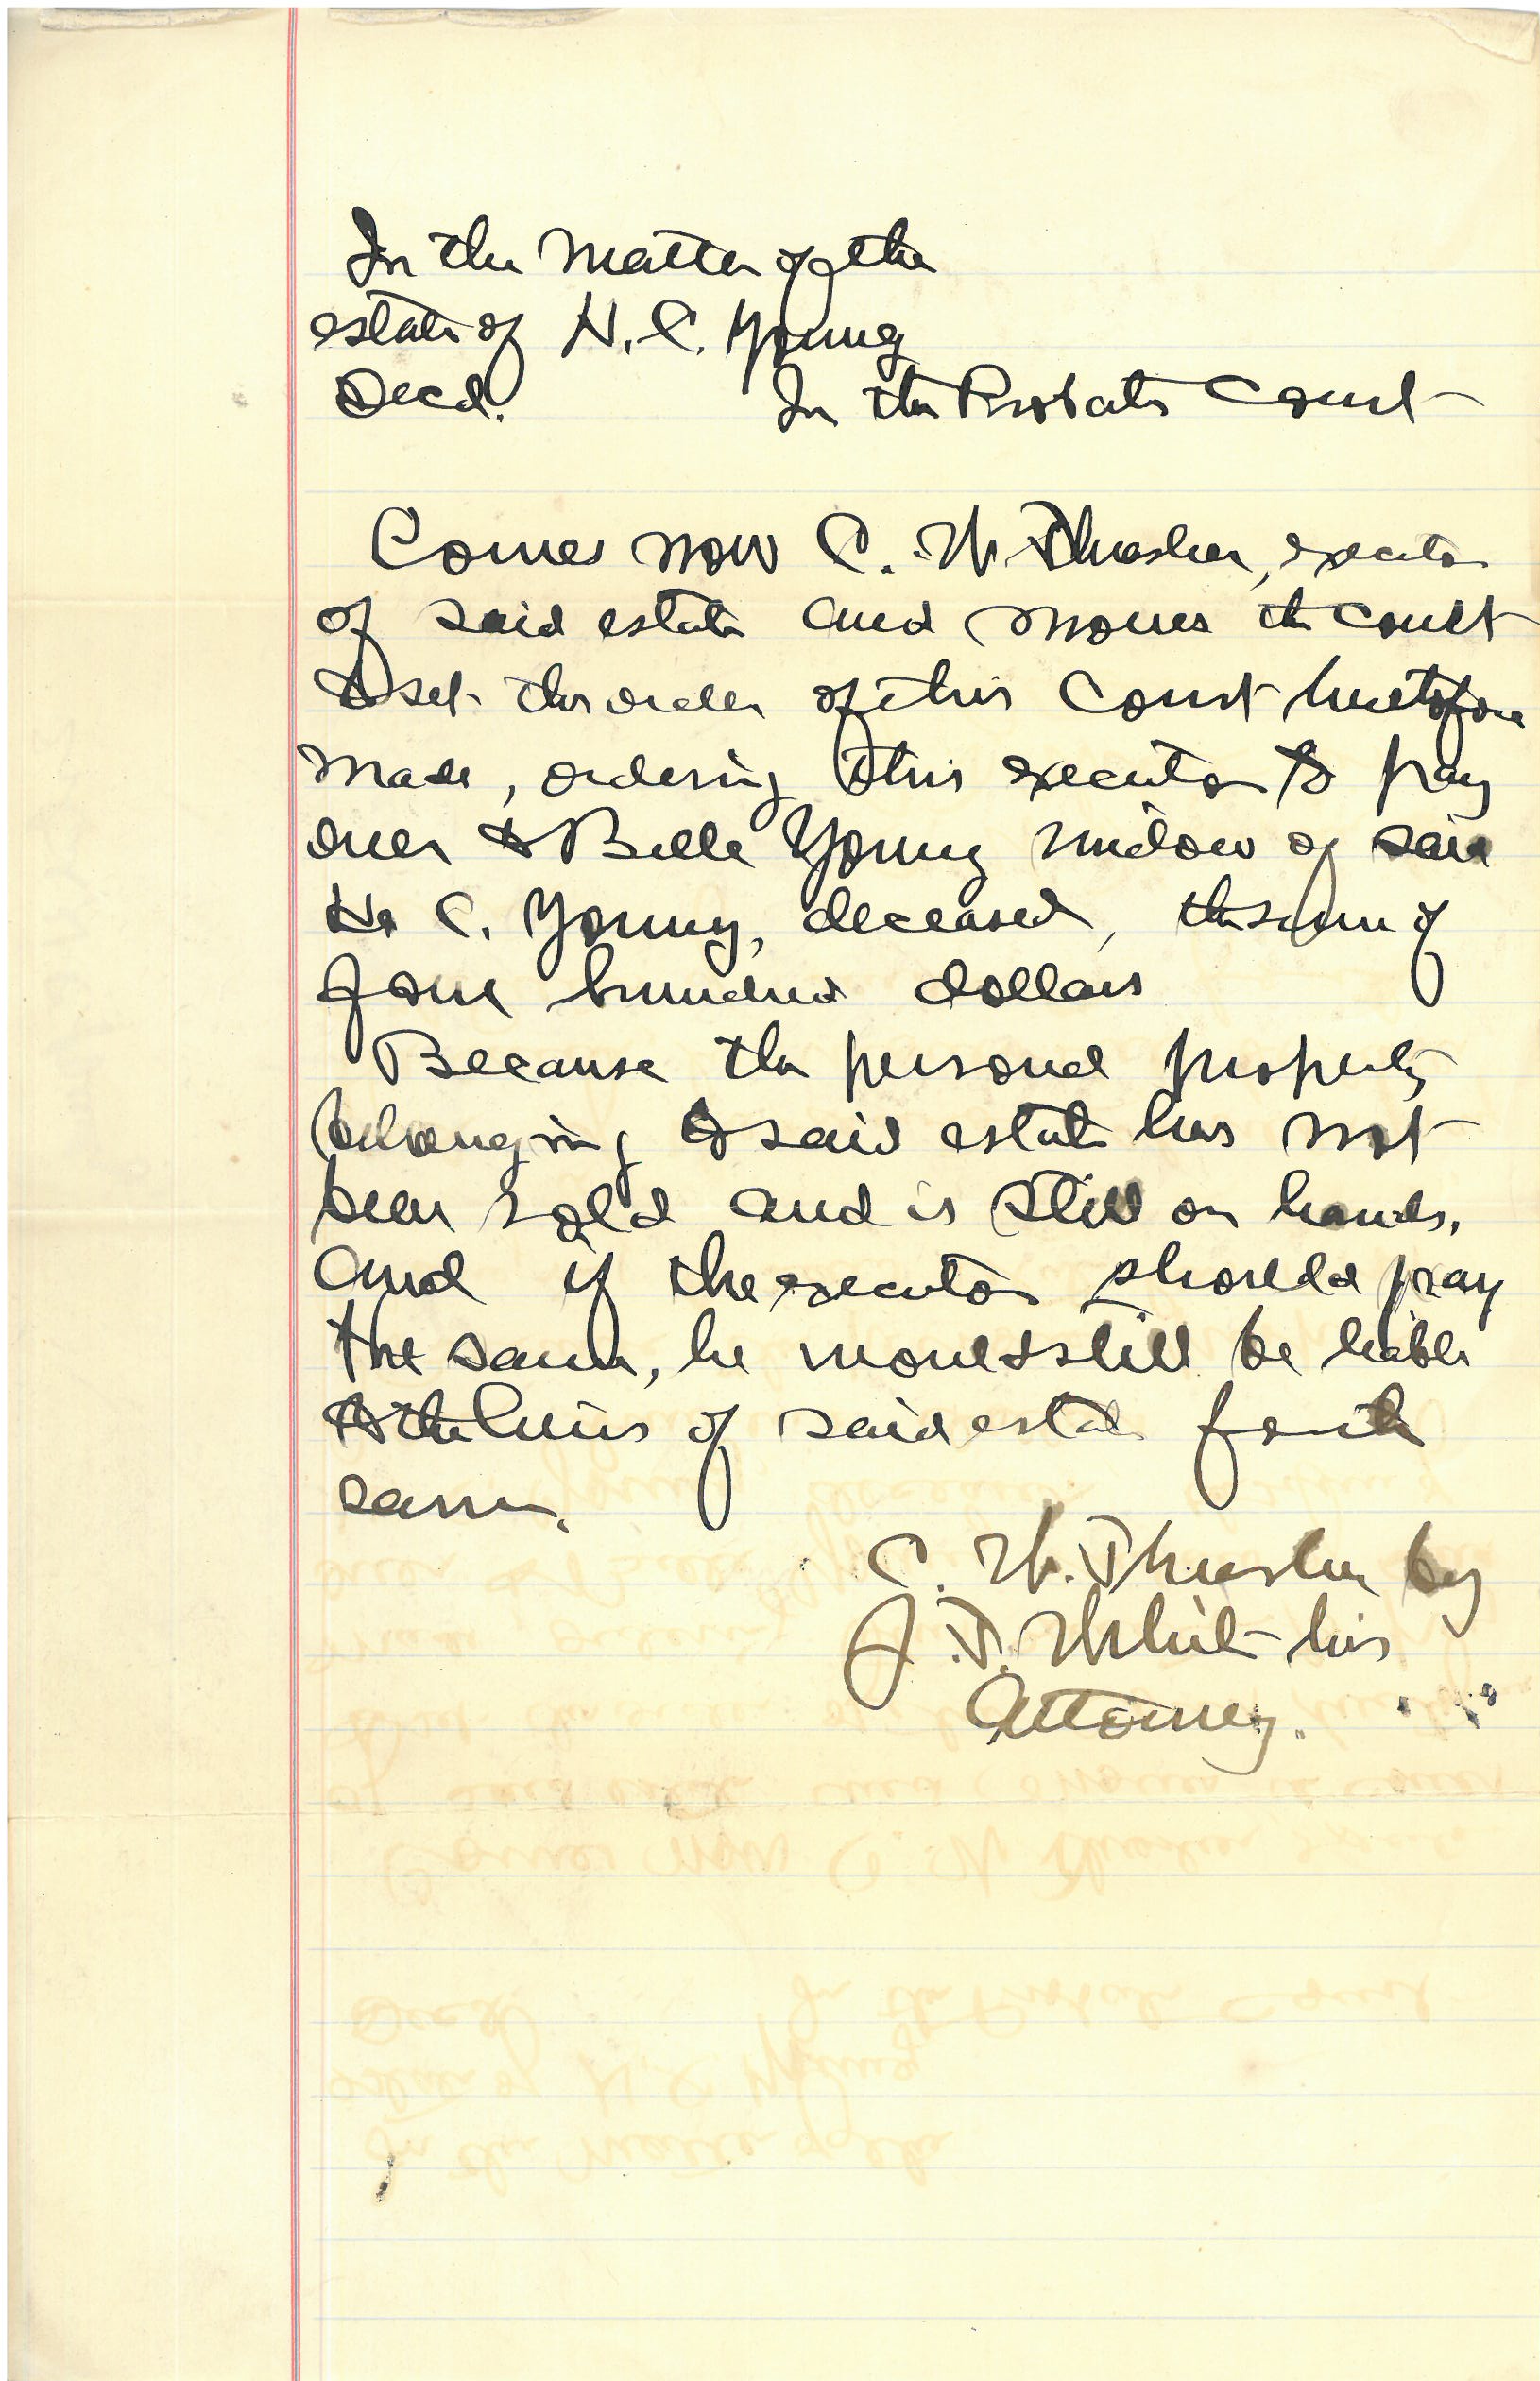 In the Matter of the
estate of H. C. Young
Decd. In the Probate Court
Comes now C. W. Thrasher, executor
of said estate and moves the court
to set the order of this Court heretofore
made, ordering this executor to pay
over to Belle Young widow of said
H. C. Young, deceased, the sum of
four hundred dollars
Because the personal property
belonging to said estate has not
been sold and is still on hands,
and if the executor should pay
the same, he would still be liable
to the heirs of said estate for the
same.
C. W. Thrasher by
J. T. White his
Attorney.